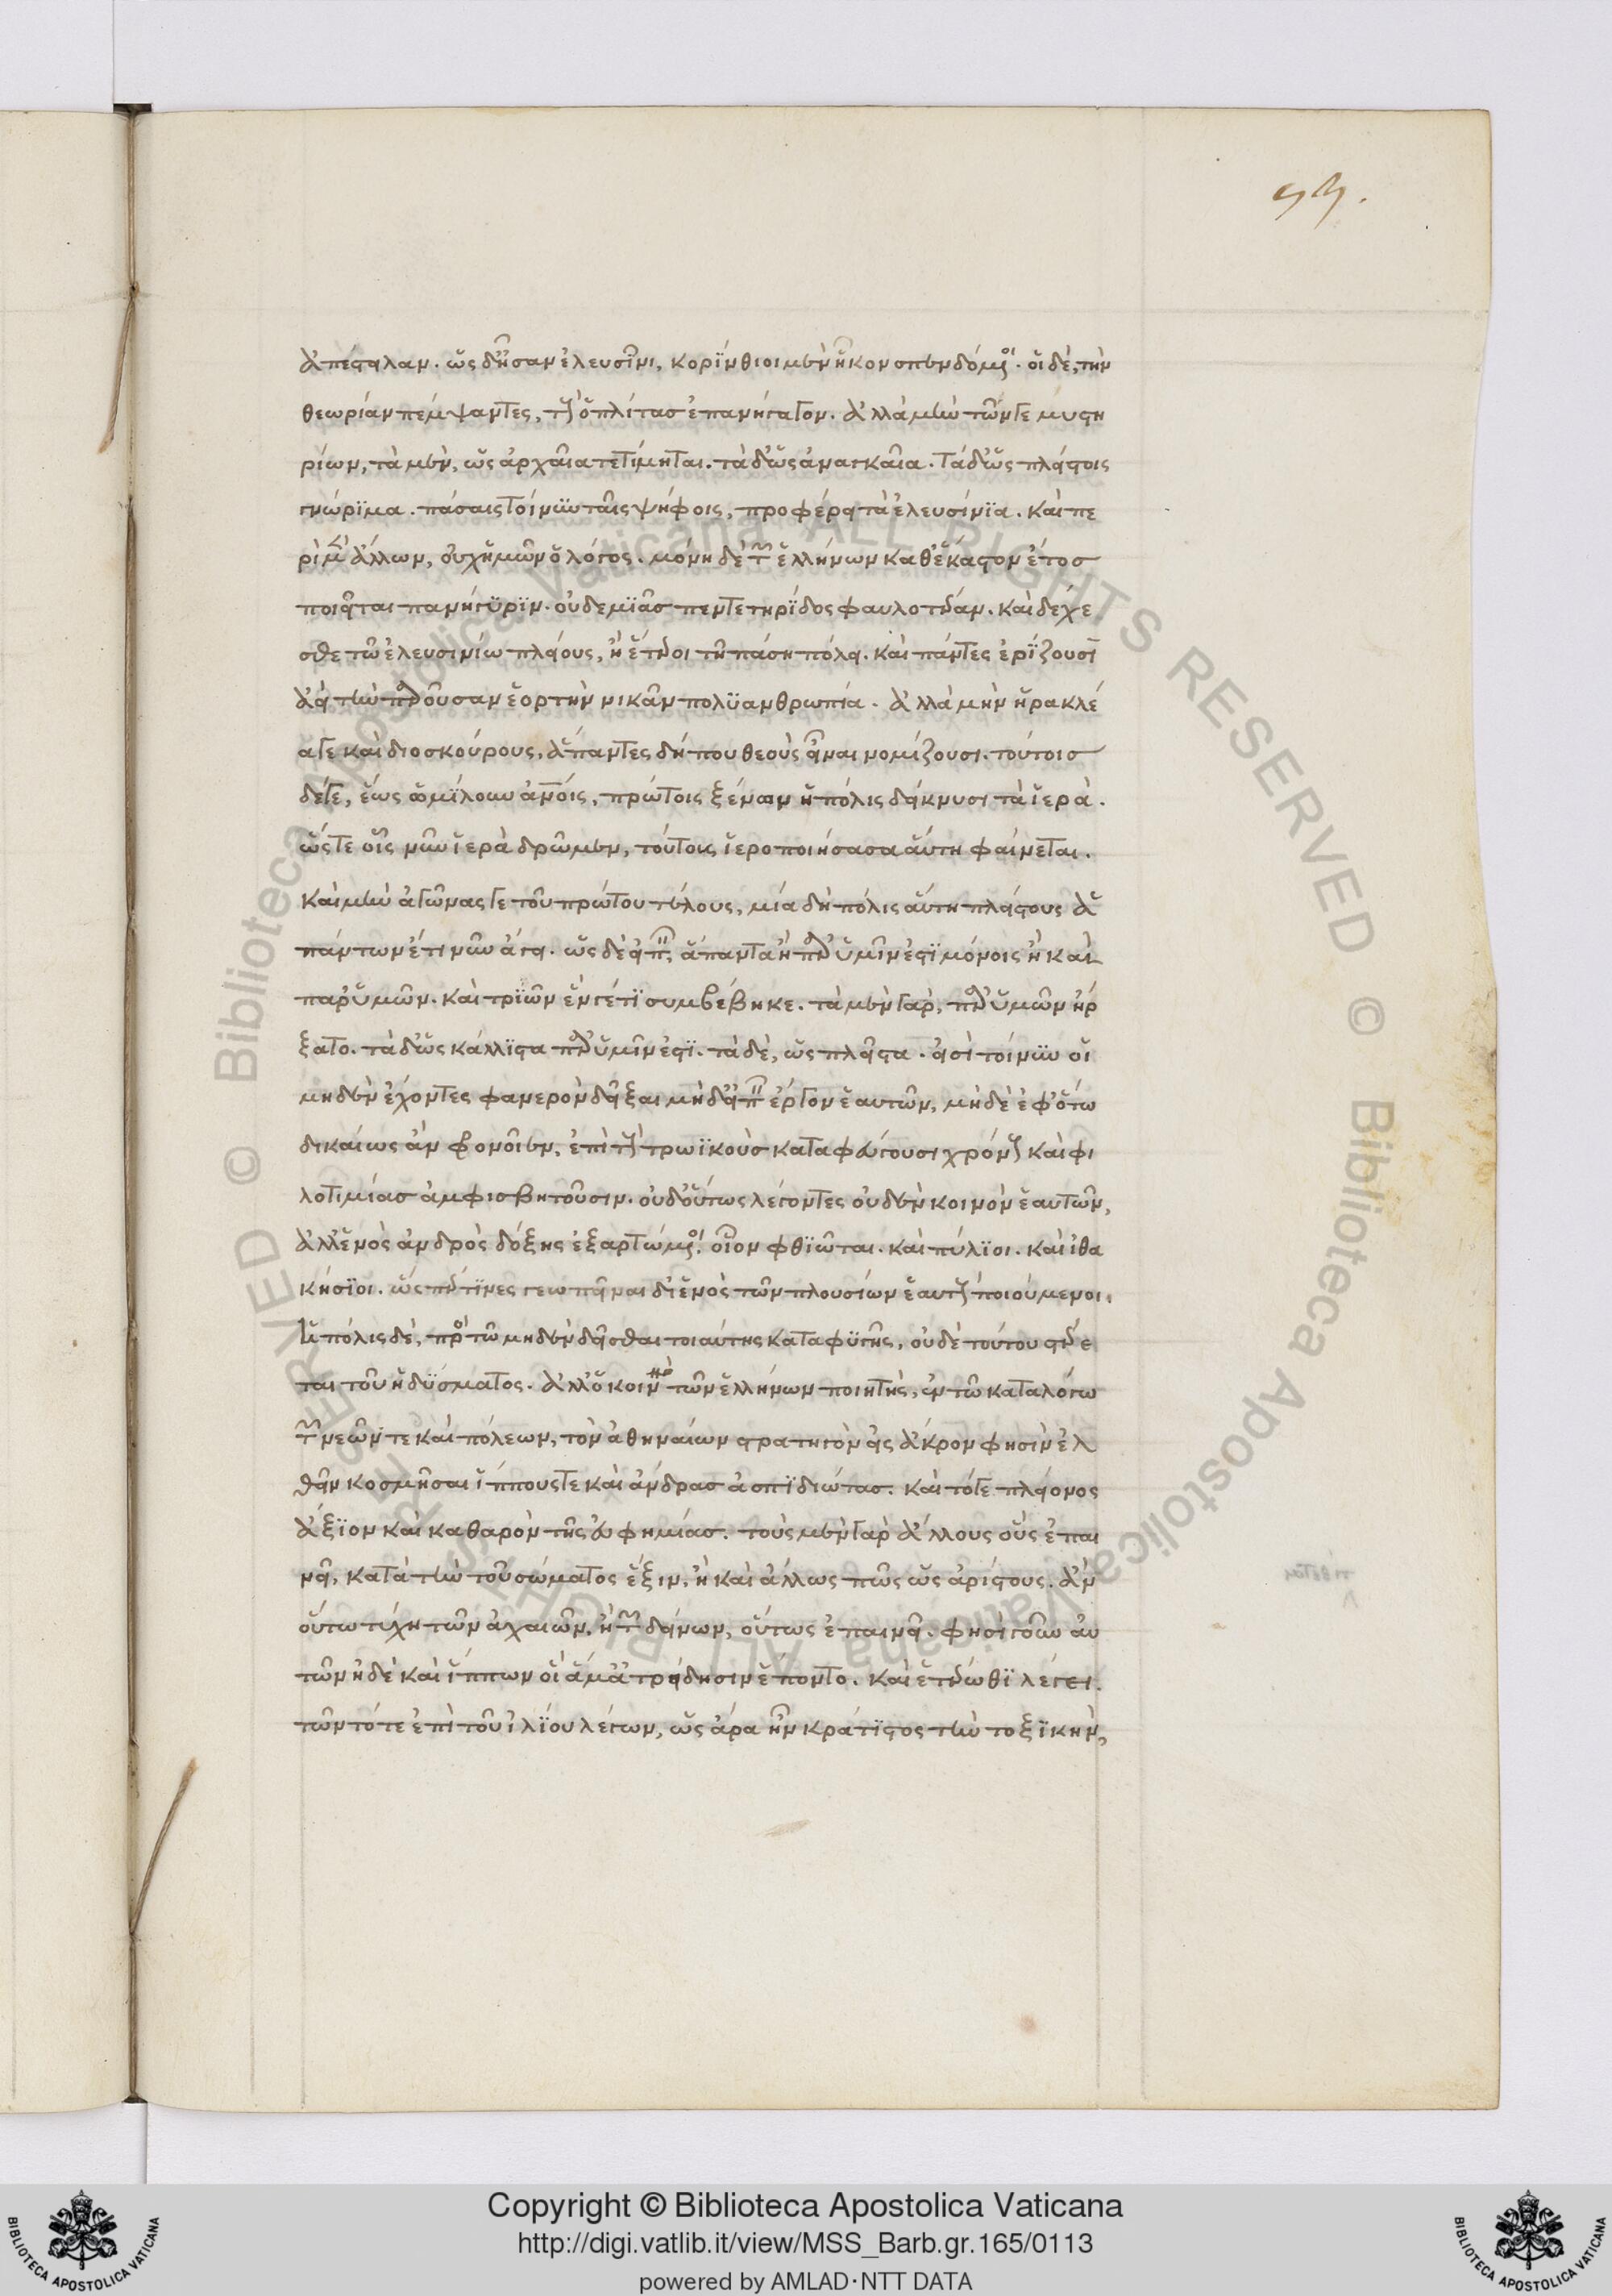 99.
ἀπέστειλαν. ὡς δ' ἦσαν ἐλευσῖνι, κορίνθιοι μὲν ἧκον σπενδόμενοι. οἱ δὲ, τὴν
θεωρίαν πέμψαντες, τοὺς ὁπλίτας ἐπανήγαγον. ἀλλὰ μὴν τῶν γε μυστη
ρίων, τὰ μὲν, ὡς ἀρχαῖα τετίμηται. τὰ δ' ὡς ἀναγκαῖα. τὰ δ' ὡς πλείστοις
γνώριμα. πάσαις τοίνυν ταῖς ψήφοις, προφέρει τὰ ἐλευσίνια. καὶ πε
ρὶ μὲν ἄλλων, οὐχ ἡμῶν ὁ λόγος. μόνη δὲ τῶν ἑλλήνων καθ' ἕκαστον ἔτος
ποιεῖται πανήγυριν. οὐδεμιᾶς πεντετηρίδος φαυλοτέραν. καὶ δέχε
σθε τῷ ἐλευσινίῳ πλείους, ἢ ἕτεροι τῇ πάσῃ πόλει. καὶ πάντες ἐρίζουσι
ἀεὶ τὴν παροῦσαν ἑορτὴν νικᾶν πολυανθρωπία. ἀλλὰ μὴν ἡρακλέ
α γε καὶ διοσκούρους, ἅπαντες δήπου θεοὺς εἶναι νομίζουσι. τούτοις
δέ γε, ἕως ὡμίλουν ἀνοις, πρώτοις ξένων ἡ πόλις δείκνυσι τὰ ἱερά.
ὥστε οἷς νῦν ἱερὰ δρῶμεν, τούτοις ἱεροποιήσασα αὕτη φαίνεται.
καὶ μὴν ἀγῶνας γε τοῦ πρώτου τέλους, μία δὴ πόλις αὕτη πλείστους ἁ
πάντων ἔτι νῦν ἄγει. ὡς δ' εἰπεῖν, ἅπαντα ἢ παρ' ὑμῖν ἐστὶ μόνοις ἢ καὶ
παρ' ὑμῶν. καὶ τριῶν ἕν γέ τι συμβέβηκε. τὰ μὲν γὰρ, παρ' ὑμῶν ἤρ
ξατο. τὰ δ' ὡς κάλλιστα παρ' ὑμῖν ἐστί. τὰ δὲ, ὡς πλεῖστα. εἰσὶ τοίνυν οἳ
μηδὲν ἔχοντες φανερὸν δεῖξαι μηδ' εἰπεῖν ἔργον ἑαυτῶν, μηδὲ ἐφ' ὅτῳ
δικαίως ἂν φρονοῖεν, ἐπὶ τοὺς τρωϊκοὺς καταφεύγουσι χρόνους καὶ φι
λοτιμίας ἀμφισβητοῦσιν. οὐδ' οὕτως λέγοντες οὐδὲν κοινὸν ἑαυτῶν,
ἀλλ' ἑνὸς ἀνδρὸς δόξης ἐξαρτώμενοι. οἷον φθιῶται. καὶ πύλιοι. καὶ ἰθα
κήσιοι. ὥσπερ τινες γεω πεῖναι δι' ἑνὸς τῶν πλουσίων ἑαυτοὺς ποιούμενοι.
ἡ πόλις δὲ, πρὸς τῷ μηδὲν δεῖσθαι τοιαύτης καταφυγῆς, οὐδὲ τούτου στέρε
ται τοῦ ἡδύσματος. ἀλλ' ὁ κοινὸς τῶν ἑλλήνων ποιητὴς, ἐν τῷ καταλόγῳ
τῶν νεῶν τε καὶ πόλεων, τὸν ἀθηναίων στρατηγὸν εἰς ἄκρον φησὶν ἐλ
θεῖν κοσμῆσαι ἵππους τε καὶ ἀνδρας ἀσπιδιώτας. καὶ τό γε πλείονος
ἄξιον καὶ καθαρὸν τῆς εὐφημίας. τοὺς μὲν γὰρ ἄλλους οὓς ἐπαι
νεῖ, κατὰ τὴν τοῦ σώματος ἕξιν, ἢ καὶ ἄλλως πῶς ὡς ἀρίστους. ἂν
οὕτω τύχῃ τῶν ἀχαιῶν, ἢ τῶν δεινων, οὕτως ἐπαινεῖ. φησὶ γοῦν αὐ
τῶν ἠδὲ καὶ ἵππων οἳ ἅμ' ἀτρείδησιν ἕποντο. καὶ ἑτέρωθι λέγει.
τῶν τότε ἐπὶ τοῦ ἰλίου λέγων, ὡς ἄρα ἦν κράτιστος τὴν τοξικὴν,
Copyright © Biblioteca Apostolica Vaticana
http://digi.vatlib.it/view/MSS_Barb.gr.165/0113
powered by AMLAD·NTT DATA